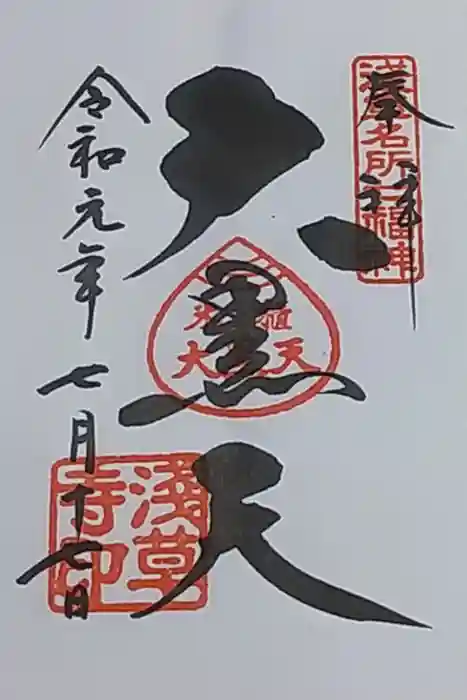 奉拝
浅草名所七福神
大黒天
大 天
令和元年七月十七日
浅草
寺印